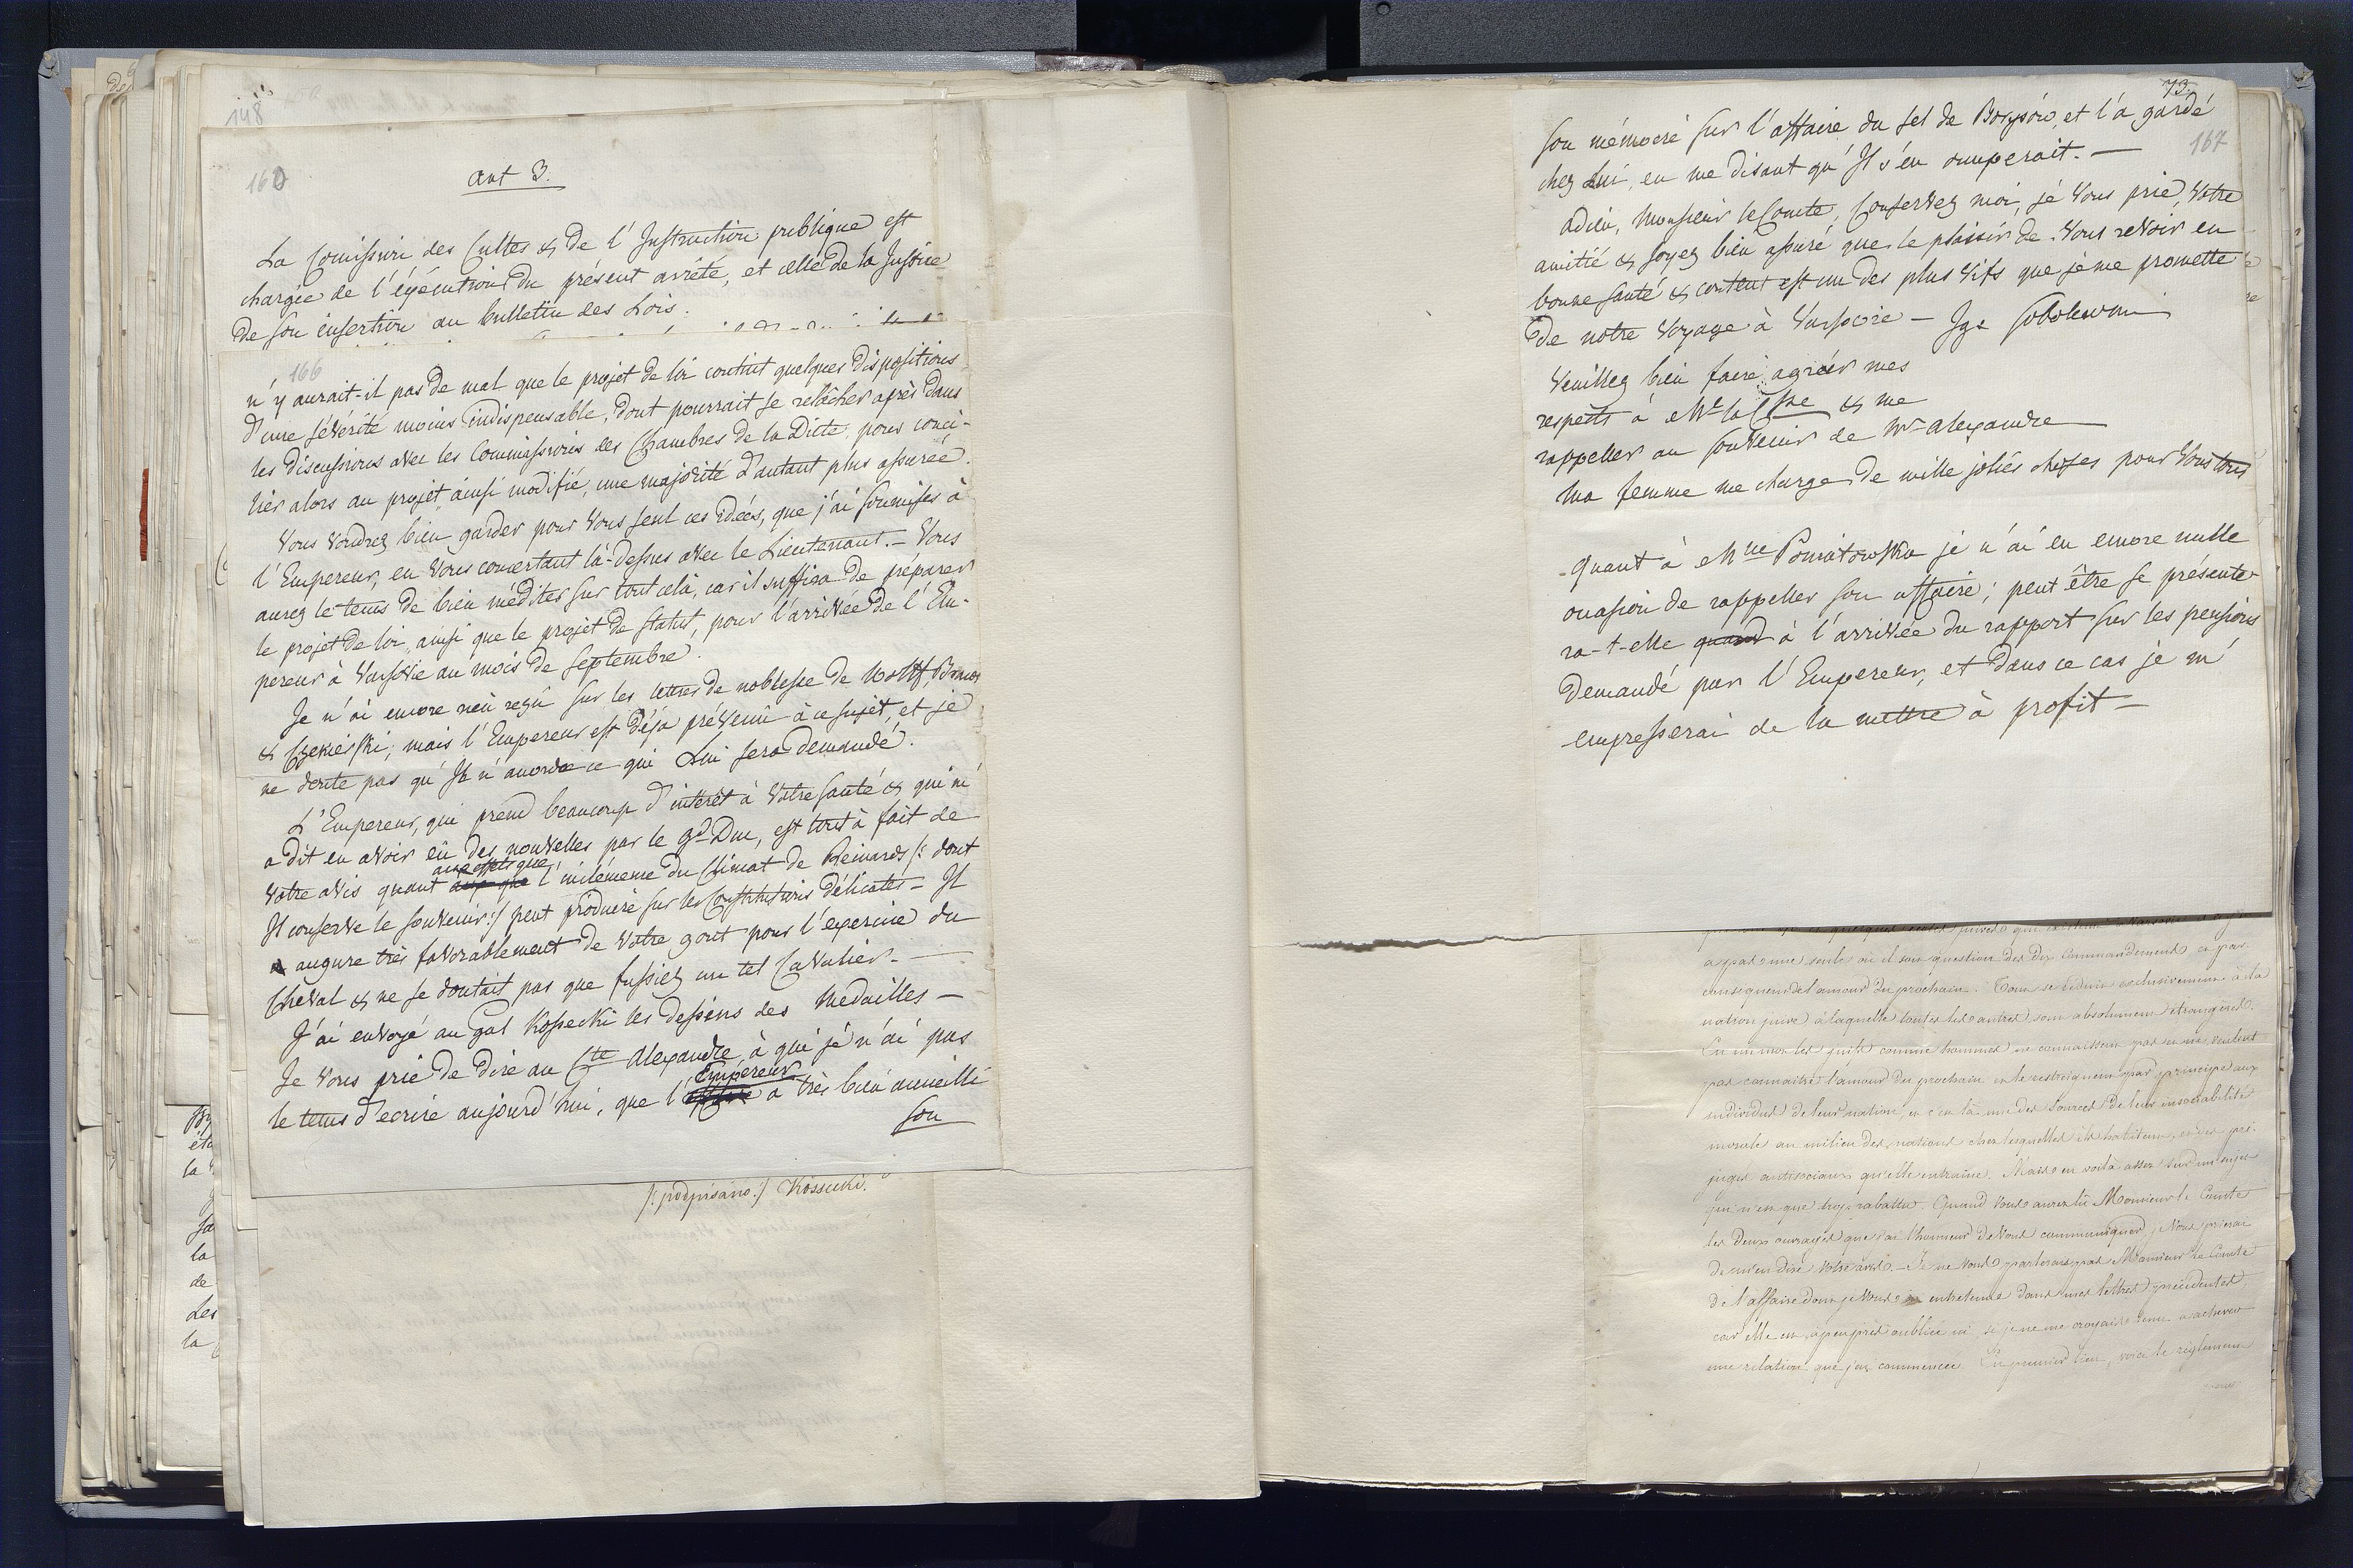 148
160
Art 3.
La Comission des Cultes & de l'Instruction publique est
chargée de l'éxécution du présent arrêté, et celle de la Justice
de son insertion au bulletin des Lois.
166
n'y aurait-il pas de mal que le projet de loi contint quelques dispositions
d'une sévérité moins indispensable, dont pourrait se relâcher après dans
les discussions avec les Commissions des Chambres de la Diète, pour conci-
lier alors au projet, ainsi modifié, une majorité d'autant plus assurée.
Vous voudrez bien garder pour Vous seul ces idées, que j'ai soumises à
l'Empereur, en Vous concertant là-dessus avec le Lieutenant. — Vous
aurez le tems de bien méditer sur tout celà, car il suffira de préparer
le projet de loi, ainsi que le projet de Statut, pour l'arrivée de l'Em-
pereur à Varsovie au mois de Septembre.
Je n'ai encore rien reçû sur les lettres de noblesse de Wolff,
& Czekierski; mais l'Empereur est déja prévenû à ce sujet, et je
ne doute pas qu'Il n'accorde ce qui Lui sera demandé.
L'Empereur, qui prend beaucoup d'intérêt à Votre santé & qui m'
a dit en avoir eû des nouvelles par le Gd Duc, est tout à fait de
Votre avis quant aux effets que l'inclémence du Climat de Reinards /: dont
Il conserve le souvenir :/ peut produire sur les Constitutions délicates — Il
augure très favorablement de Votre gout pour l'exercice du
Cheval & ne se doutait pas que fussiez un tel Cavalier. —
J'ai envoyé au Gal Kossecki les dessins des Medailles —
Je Vous prie de dire au Cte Alexandre, à qui je n'ai pas
le tems d'ecrire aujourd'hui, que l'Empereur a très bien accueilli
son
/: podpisano :/ Kossecki.
73.
167
son mémoire sur l'affaire du sel de et l'a gardé
chez Lui, en me disant qu'Il s'en occuperait. —
Adieu, Monsieur le Comte, Conservez moi, je Vous prie, Votre
amitié & soyez bien assuré que le plaisir de Vous revoir en
bonne santé & content est un des plus vifs que je me promette
de notre voyage à Varsovie — Ige Sobolewski
Veuillez bien faire agréer mes
respects à Me la Ctsse & me
rappeller au souvenir de Mr Alexandre —
Ma femme me charge de mille jolies choses pour Vous tous
Quant à Mlle Poniatowska je n'ai eu encore nulle
occasion de rappeller son affaire; peut être se présente-
ra-t-elle quand à l'arrivée du rapport sur les pensions
demandé par l'Empereur, et dans ce cas je m'
empresserai de la mettre à profit —
a pas une seule où il soit question des Dix Commandemens et par
conséquent de l'amour du prochain. Tout se réduit exclusivement à la
nation juive à laquelle toutes les autres sont absolument étrangères.
En un mot les juifs comme hommes ne connaissent pas ou ne veulent
pas connaitre l'amour du prochain et le restreignent par principe aux
individus de leur nation et c'est là une des sources de leur insociabilité
morale au milieu des nations chez lesquelles ils habitent, et des pré-
jugés antisociaux qu'elle entraine. Mais en voilà assez sur un sujet
qui n'est que trop rabattu. Quand Vous aurez lû Monsieur le Comte
les Deux ouvrages que j'ai l'honneur de Vous communiquer, je Vous prierai
de m'en dire Votre avis. — Je ne Vous parlerais pas Monsieur le Comte
de l'affaire dont je Vous ai entretenu dans mes lettres précédentes,
car elle est à peu près oubliée ici, si je ne me croyais tenu à achever
une relation que j'ai commencée. En premier lieu, voici le reglement